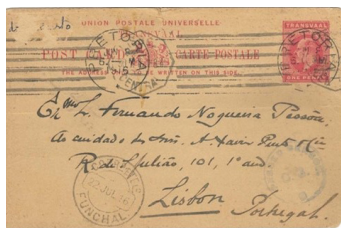 UNION POSTALE UNIVERSELLE
TRANSVAAL
POST CARD CARTE POSTALE
THE ADDRESS TO BE WRITTEN ON THIS SIDE.
TRANSVAAL
ONE PENNY
PRETORIA
PRETORIA
Exmo. Sr. Fernando Nogueira Pessôa,
Ao cuidado do Snr. A. Xavier Pinto & Cia
R. de S. Julião, 101, 1º and.
Lisbon
Portugal.
FUNCHAL